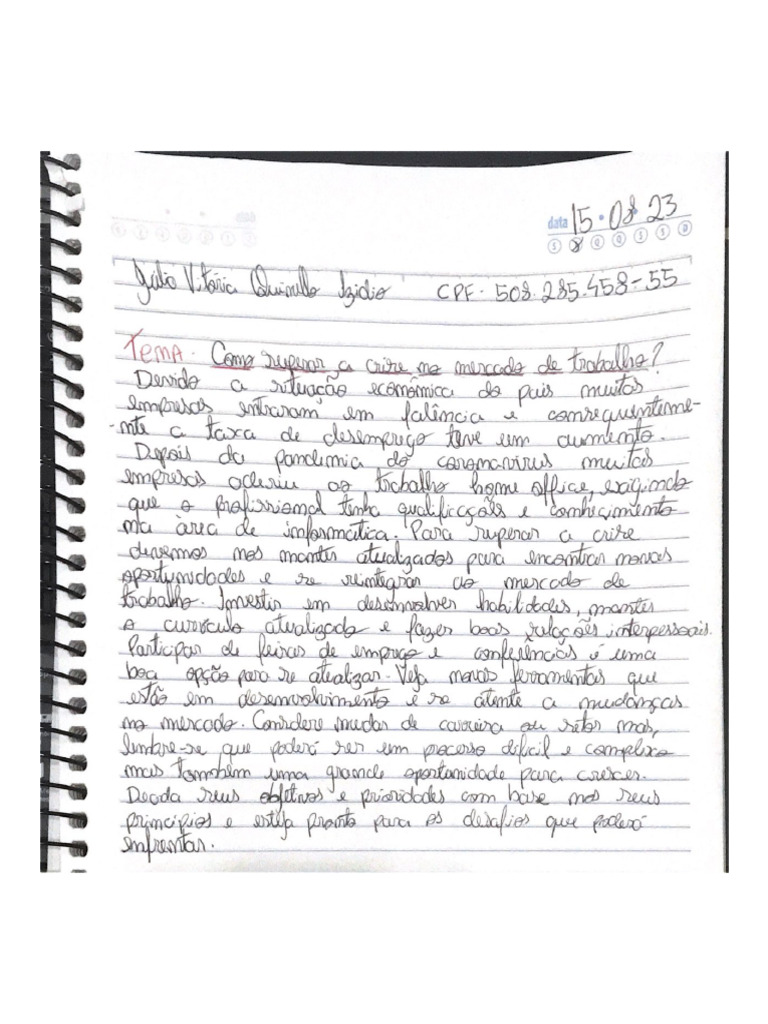 data 15.08.23
Júlia Vitória Quinello Izidio CPF. 508.285.458-55
TEMA. Como superar a crise no mercado de trabalho?
Devido a situação econômica do pais muitas
empresas entraram em falência e consequenteme-
-nte a taxa de desemprego teve um aumento.
Depois da pandemia do coronavirus muitas
empresas aderiu ao trabalho home office, exigindo
que o profissional tenha qualificações e conhecimento
na área de informática. Para superar a crise
devemos nos manter atualizados para encontrar novas
oportunidades e se reintegrar ao mercado de
trabalho. Investir em desenvolver habilidades, manter
o currículo atualizado e fazer boas relações interpessoais.
Participar de feiras de emprego e conferências é uma
boa opção para se atualizar. Veja novas ferramentas que
estão em desenvolvimento e se atente a mudanças
no mercado. Considere mudar de carreira ou setor mas,
lembre-se que poderá ser um processo dificil e complexo
mais também uma grande oportunidade para crescer.
Decida seus objetivos e prioridades com base nos seus
princípios e esteja pronto para os desafios que poderá
enfrentar.